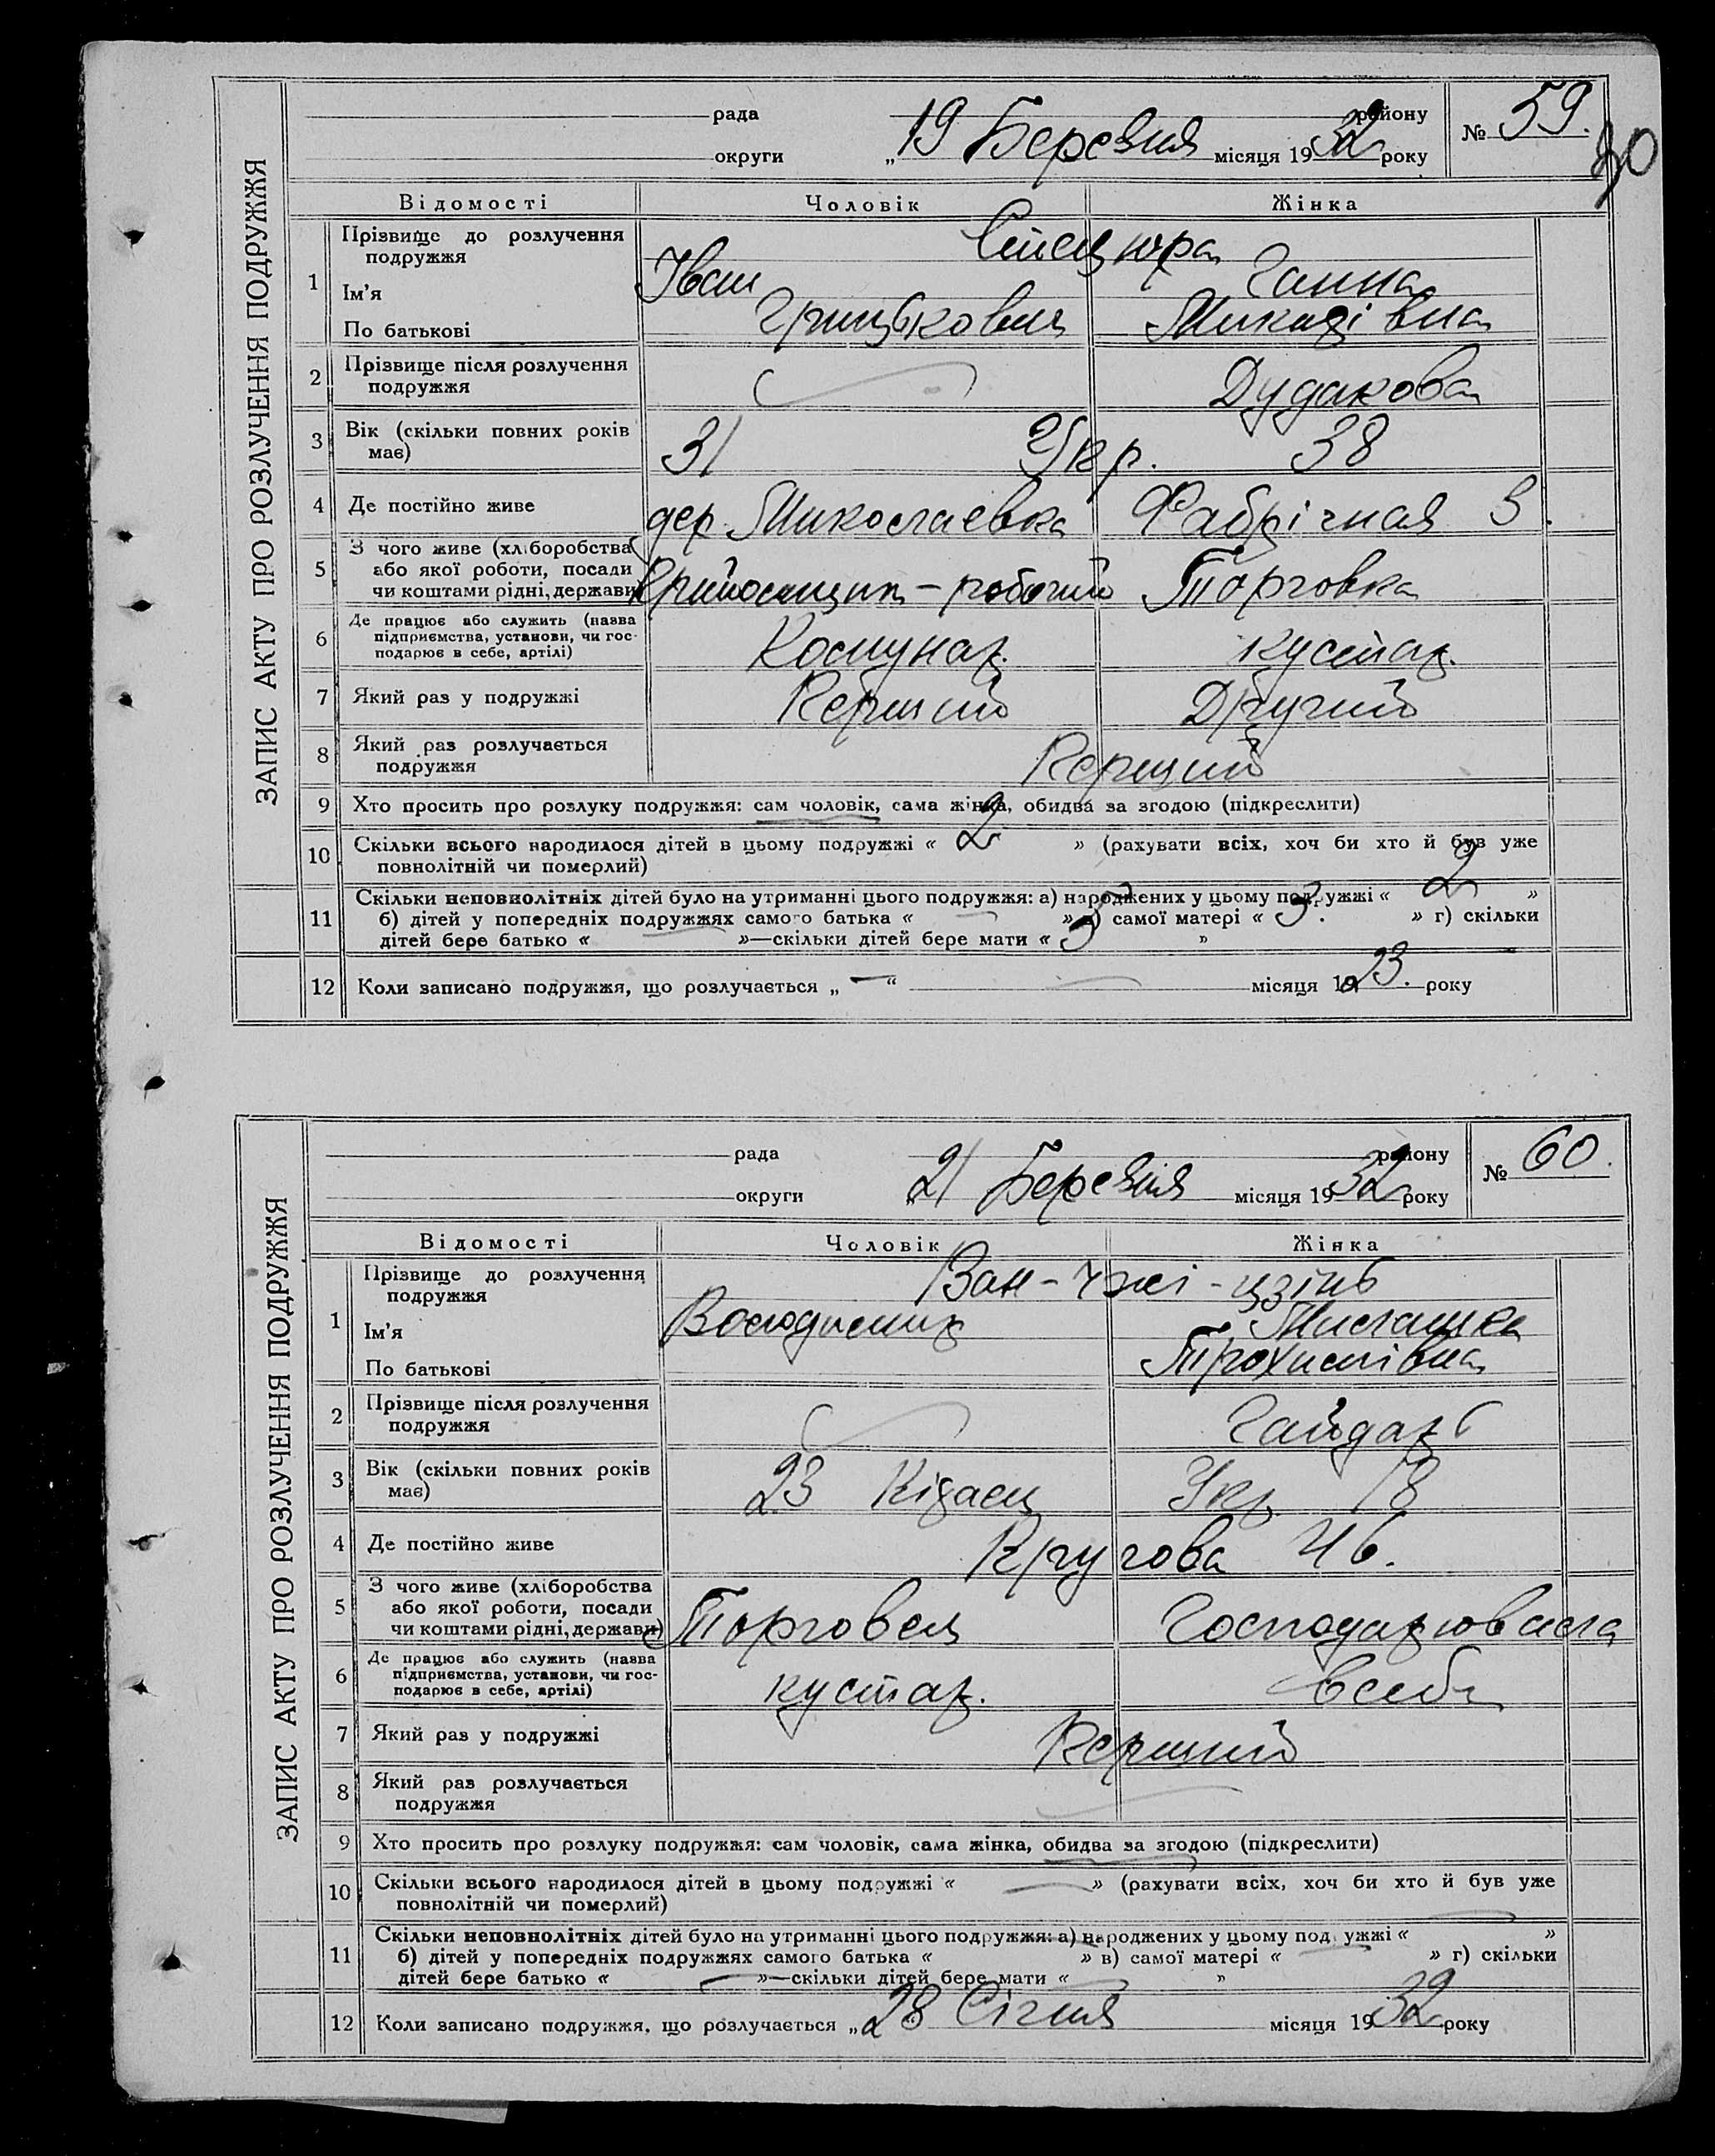 ЗАПИС АКТУ ПРО РОЗЛУЧЕННЯ ПОДРУЖЖЯ
рада району
округи „19 Березня місяця 1932 року
№ 59.
Відомості Чоловік Жінка
1 Прізвище до розлучення подружжя Стецюра
Ім'я Іван Ганна
По батькові Грицькович
2 Прізвище після розлучення подружжя Дудакова
3 Вік (скільки повних років має) 31 Укр. 38
4 Де постійно живе дер. Миколаевка Фабрічная 3.
5 З чого живе (хліборобства
або якої роботи, посади
чи коштами рідні, держави) робочий Торговка
6 Де працює або служить (назва
підприємства, установи, чи гос-
подарює в себе, артілі) Комунар. кустар.
7 Який раз у подружжі Перший Другий
8 Який раз розлучається
подружжя Перший
9 Хто просить про розлуку подружжя: сам чоловік, сама жінка, обидва за згодою (підкреслити)
10 Скільки всього народилося дітей в цьому подружжі « 2 » (рахувати всіх, хоч би хто й був уже
повнолітній чи померлий)
11 Скільки неповнолітніх дітей було на утриманні цього подружжя: а) народжених у цьому подружжі « 2 »
б) дітей у попередніх подружжях самого батька « — » в) самої матері « 3. » г) скільки
дітей бере батько « »—скільки дітей бере мати « »
12 Коли записано подружжя, що розлучається „ — “ — місяця 1923. року
ЗАПИС АКТУ ПРО РОЗЛУЧЕННЯ ПОДРУЖЖЯ
рада району
округи „21 Березня місяця 1932 року
№ 60.
Відомості Чоловік Жінка
1 Прізвище до розлучення подружжя Ван-Чжі-цзінь
Ім'я Володимир
По батькові Трохимівна
2 Прізвище після розлучення
подружжя Гайдарь
3 Вік (скільки повних років
має) 23 Кітаец Укр. 18
4 Де постійно живе Кругова 46.
5 З чого живе (хліборобства
або якої роботи, посади
чи коштами рідні, держави) Торговец Господарювала
6 Де працює або служить (назва
підприємства, установи, чи гос-
подарює в себе, артілі) кустар. в себе
7 Який раз у подружжі Перший
8 Який раз розлучається
подружжя —
9 Хто просить про розлуку подружжя: сам чоловік, сама жінка, обидва за згодою (підкреслити)
10 Скільки всього народилося дітей в цьому подружжі « — » (рахувати всіх, хоч би хто й був уже
повнолітній чи померлий)
11 Скільки неповнолітніх дітей було на утриманні цього подружжя: а) народжених у цьому подружжі « — »
б) дітей у попередніх подружжях самого батька « » в) самої матері « — » г) скільки
дітей бере батько « — »—скільки дітей бере мати « — »
12 Коли записано подружжя, що розлучається „28 Січня місяця 1932 року